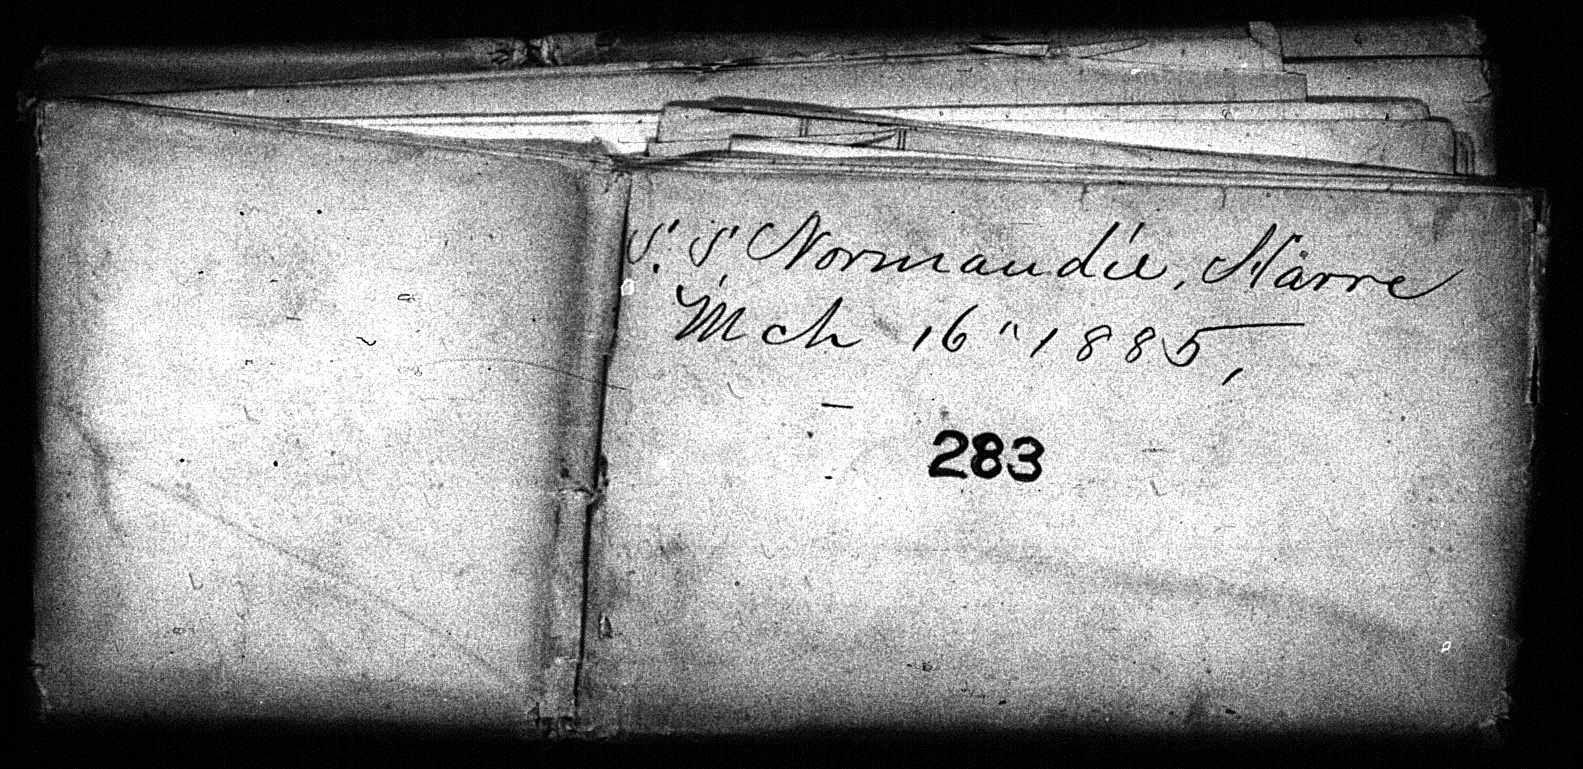 S. S. Normandie, Hàvre
Mch 16" 1885,
283